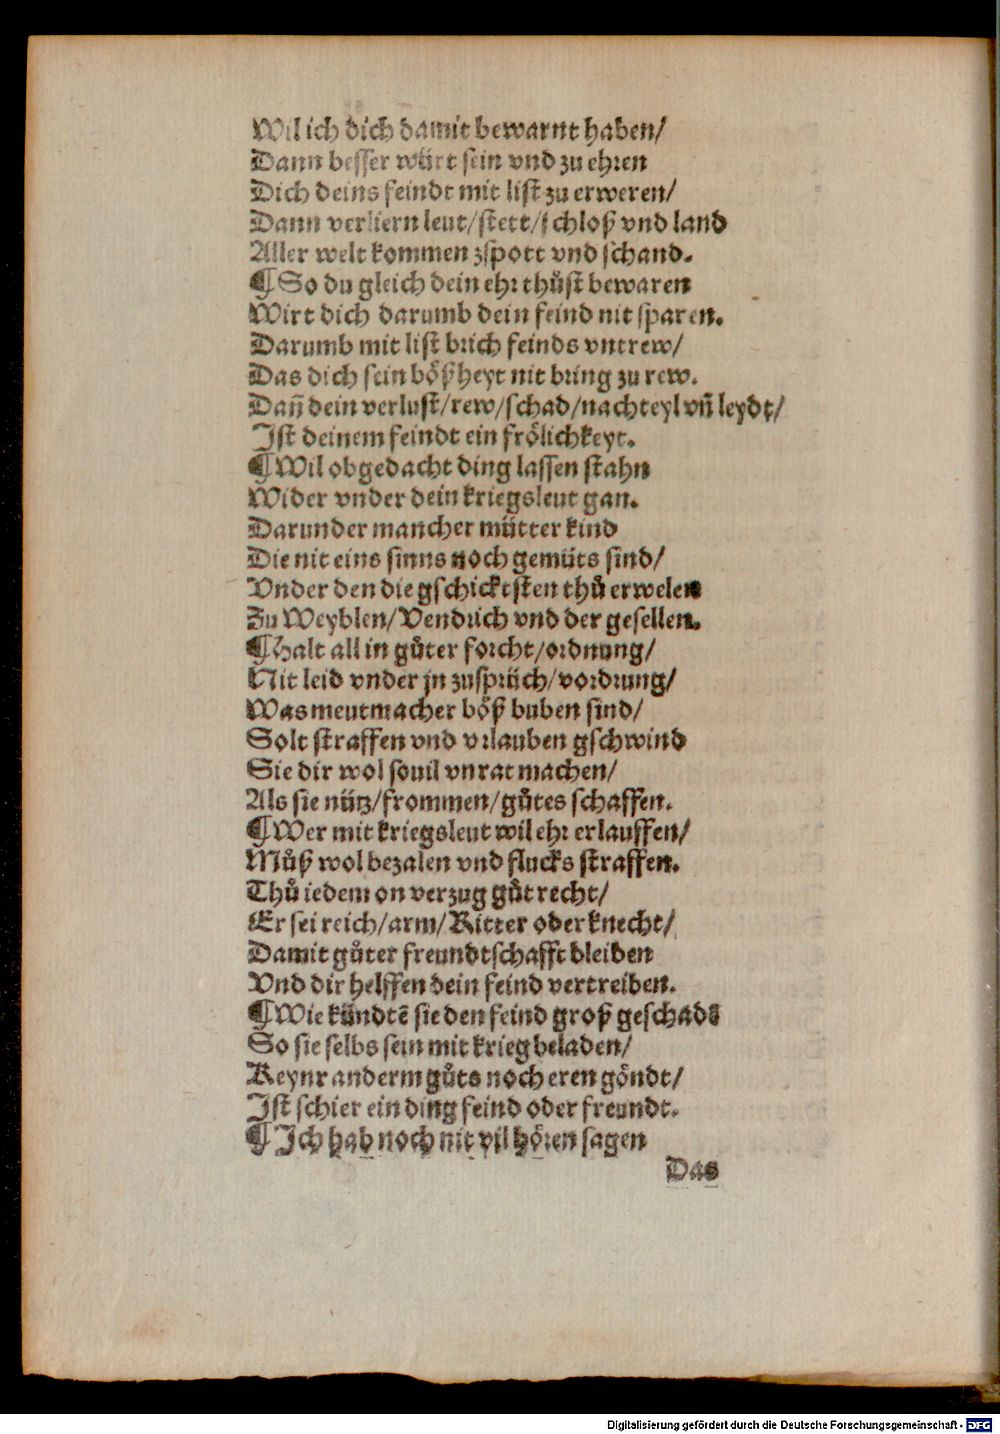 Wil ich dich damit bewarnt haben/
Dann besser würt sein vnd zu ehren
Dich deins feindt mit list zu erweren/
Dann verliern leut/stett/schloß vnd land
Aller welt kommen zspott vnd schand.
¶ So du gleich dein ehr thůst bewaren
Wirt dich darumb dein feind nit sparen.
Darumb mit list brich feinds vntrew/
Das dich sein bößheyt nit bring zu rew.
Dañ dein verlust/rew/schad/nachteyl vñ leydt/
Ist deinem feindt ein frölichkeyt.
¶ Wil obgedacht ding lassen stahn
Wider vnder dein kriegsleut gan.
Darunder mancher mütter kind
Die nit eins sinns noch gemüts sind/
Vnder den die gschicktsten thů erwelen
Zu Weyblen/Vendrich vnd der gesellen.
¶ Halt all in gůter forcht/ordnung/
Nit leid vnder jn zusprüch/vordrung/
Was meutmacher böß buben sind/
Solt straffen vnd vrlauben gschwind
Sie dir wol souil vnrat machen/
Als sie nütz/frommen/gůtes schaffen.
¶ Wer mit kriegsleut wil ehr erlauffen/
Můß wol bezalen vnd flucks straffen.
Thů iedem on verzug gůt recht/
Er sei reich/arm/Ritter oder knecht/
Damit gůter freundtschafft bleiben
Vnd dir helffen dein feind vertreiben.
¶ Wie kündtē sie den feind groß geschadē
So sie selbs sein mit krieg beladen/
Keynr anderm gůts noch eren göndt/
Ist schier ein ding feind oder freundt.
¶ Ich hab noch nit vil hören sagen
Das
Digitalisierung gefördert durch die Deutsche Forschungsgemeinschaft - DFG